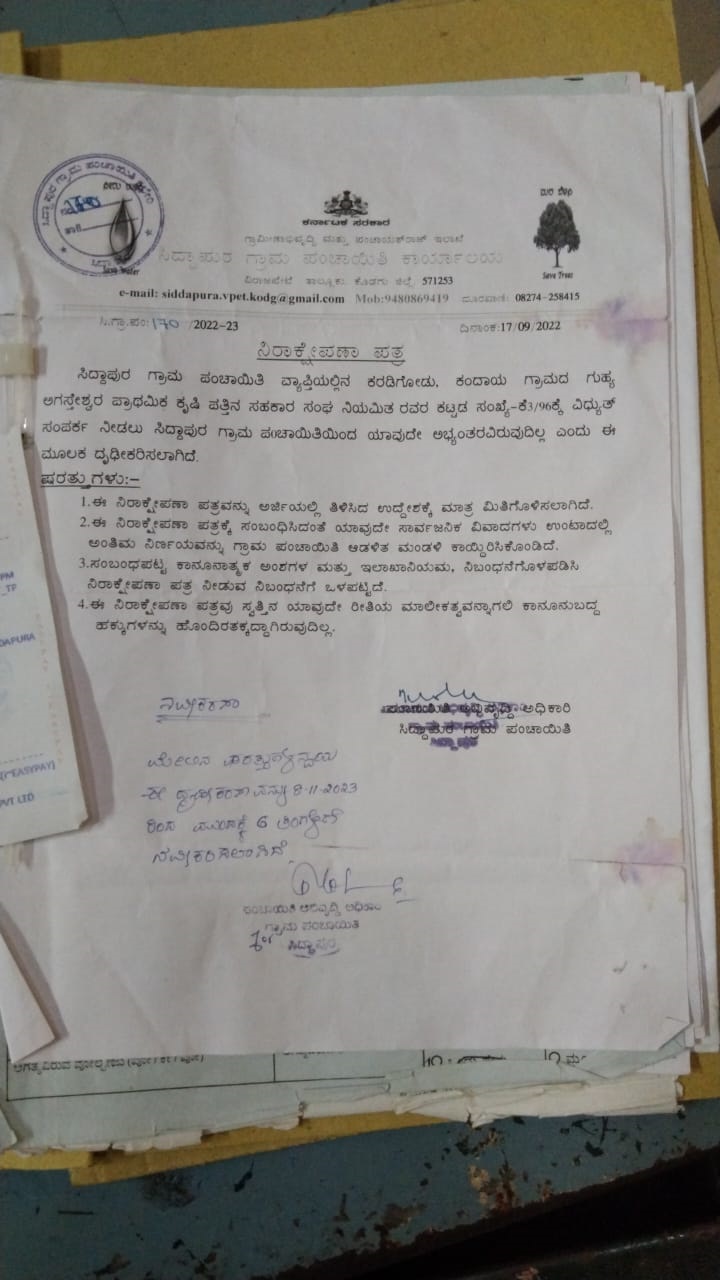 ಸಿದ್ದಾಪುರ ಗ್ರಾಮ ಪಂಚಾಯಿತಿ
ನೀರು ಉಳಿಸಿ
Save Water
ಮರ ಬೆಳೆಸಿ
Save Trees
ಕರ್ನಾಟಕ ಸರಕಾರ
ಗ್ರಾಮೀಣಾಭಿವೃದ್ಧಿ ಮತ್ತು ಪಂಚಾಯತ್‌ರಾಜ್ ಇಲಾಖೆ
ಸಿದ್ದಾಪುರ ಗ್ರಾಮ ಪಂಚಾಯಿತಿ ಕಾರ್ಯಾಲಯ
ವಿರಾಜಪೇಟೆ ತಾಲ್ಲೂಕು ಕೊಡಗು ಜಿಲ್ಲೆ 571253
e-mail: siddapura.vpet.kodg@gmail.com Mob:9480869419 ದೂರವಾಣಿ: 08274-258415
ಸಿ.ಗ್ರಾ.ಪಂ:170 /2022-23 ದಿನಾಂಕ:17/09/2022
ನಿರಾಕ್ಷೇಪಣಾ ಪತ್ರ
ಸಿದ್ದಾಪುರ ಗ್ರಾಮ ಪಂಚಾಯಿತಿ ವ್ಯಾಪ್ತಿಯಲ್ಲಿನ ಕರಡಿಗೋಡು, ಕಂದಾಯ ಗ್ರಾಮದ ಗುಹ್ಯ
ಅಗಸ್ತೇಶ್ವರ ಪ್ರಾಥಮಿಕ ಕೃಷಿ ಪತ್ತಿನ ಸಹಕಾರ ಸಂಘ ನಿಯಮಿತ ರವರ ಕಟ್ಟಡ ಸಂಖ್ಯೆ-ಕೆ3/96ಕ್ಕೆ ವಿಧ್ಯುತ್
ಸಂಪರ್ಕ ನೀಡಲು ಸಿದ್ದಾಪುರ ಗ್ರಾಮ ಪಂಚಾಯಿತಿಯಿಂದ ಯಾವುದೇ ಅಭ್ಯಂತರವಿರುವುದಿಲ್ಲ ಎಂದು ಈ
ಮೂಲಕ ದೃಢೀಕರಿಸಲಾಗಿದೆ.
ಷರತ್ತುಗಳು:-
1.ಈ ನಿರಾಕ್ಷೇಪಣಾ ಪತ್ರವನ್ನು ಅರ್ಜಿಯಲ್ಲಿ ತಿಳಿಸಿದ ಉದ್ದೇಶಕ್ಕೆ ಮಾತ್ರ ಮಿತಿಗೊಳಿಸಲಾಗಿದೆ.
2.ಈ ನಿರಾಕ್ಷೇಪಣಾ ಪತ್ರಕ್ಕೆ ಸಂಬಂಧಿಸಿದಂತೆ ಯಾವುದೇ ಸಾರ್ವಜನಿಕ ವಿವಾದಗಳು ಉಂಟಾದಲ್ಲಿ
ಅಂತಿಮ ನಿರ್ಣಯವನ್ನು ಗ್ರಾಮ ಪಂಚಾಯಿತಿ ಆಡಳಿತ ಮಂಡಳಿ ಕಾಯ್ದಿರಿಸಿಕೊಂಡಿದೆ.
3.ಸಂಬಂಧಪಟ್ಟ ಕಾನೂನಾತ್ಮಕ ಅಂಶಗಳ ಮತ್ತು ಇಲಾಖಾನಿಯಮ, ನಿಬಂಧನೆಗೊಳಪಡಿಸಿ
ನಿರಾಕ್ಷೇಪಣಾ ಪತ್ರ ನೀಡುವ ನಿಬಂಧನೆಗೆ ಒಳಪಟ್ಟಿದೆ.
4.ಈ ನಿರಾಕ್ಷೇಪಣಾ ಪತ್ರವು ಸ್ವತ್ತಿನ ಯಾವುದೇ ರೀತಿಯ ಮಾಲೀಕತ್ವವನ್ನಾಗಲಿ ಕಾನೂನುಬದ್ದ
ಹಕ್ಕುಗಳನ್ನು ಹೊಂದಿರತಕ್ಕದ್ದಾಗಿರುವುದಿಲ್ಲ.
ಪಂಚಾಯಿತಿ ಅಭಿವೃದ್ಧಿ ಅಧಿಕಾರಿ
ಸಿದ್ದಾಪುರ ಗ್ರಾಮ ಪಂಚಾಯಿತಿ
ನವೀಕರಣ
ಮೇಲಿನ
ಈ 8-11-2023
6
ನವೀಕರಿಸಲಾಗಿದೆ
ಪಂಚಾಯಿತಿ ಅಭಿವೃದ್ಧಿ ಅಧಿಕಾರಿ
ಗ್ರಾಮ ಪಂಚಾಯಿತಿ
for ಸಿದ್ದಾಪುರ
PM
_TP
DAPURA
("EASYPAY)
PVT LTD